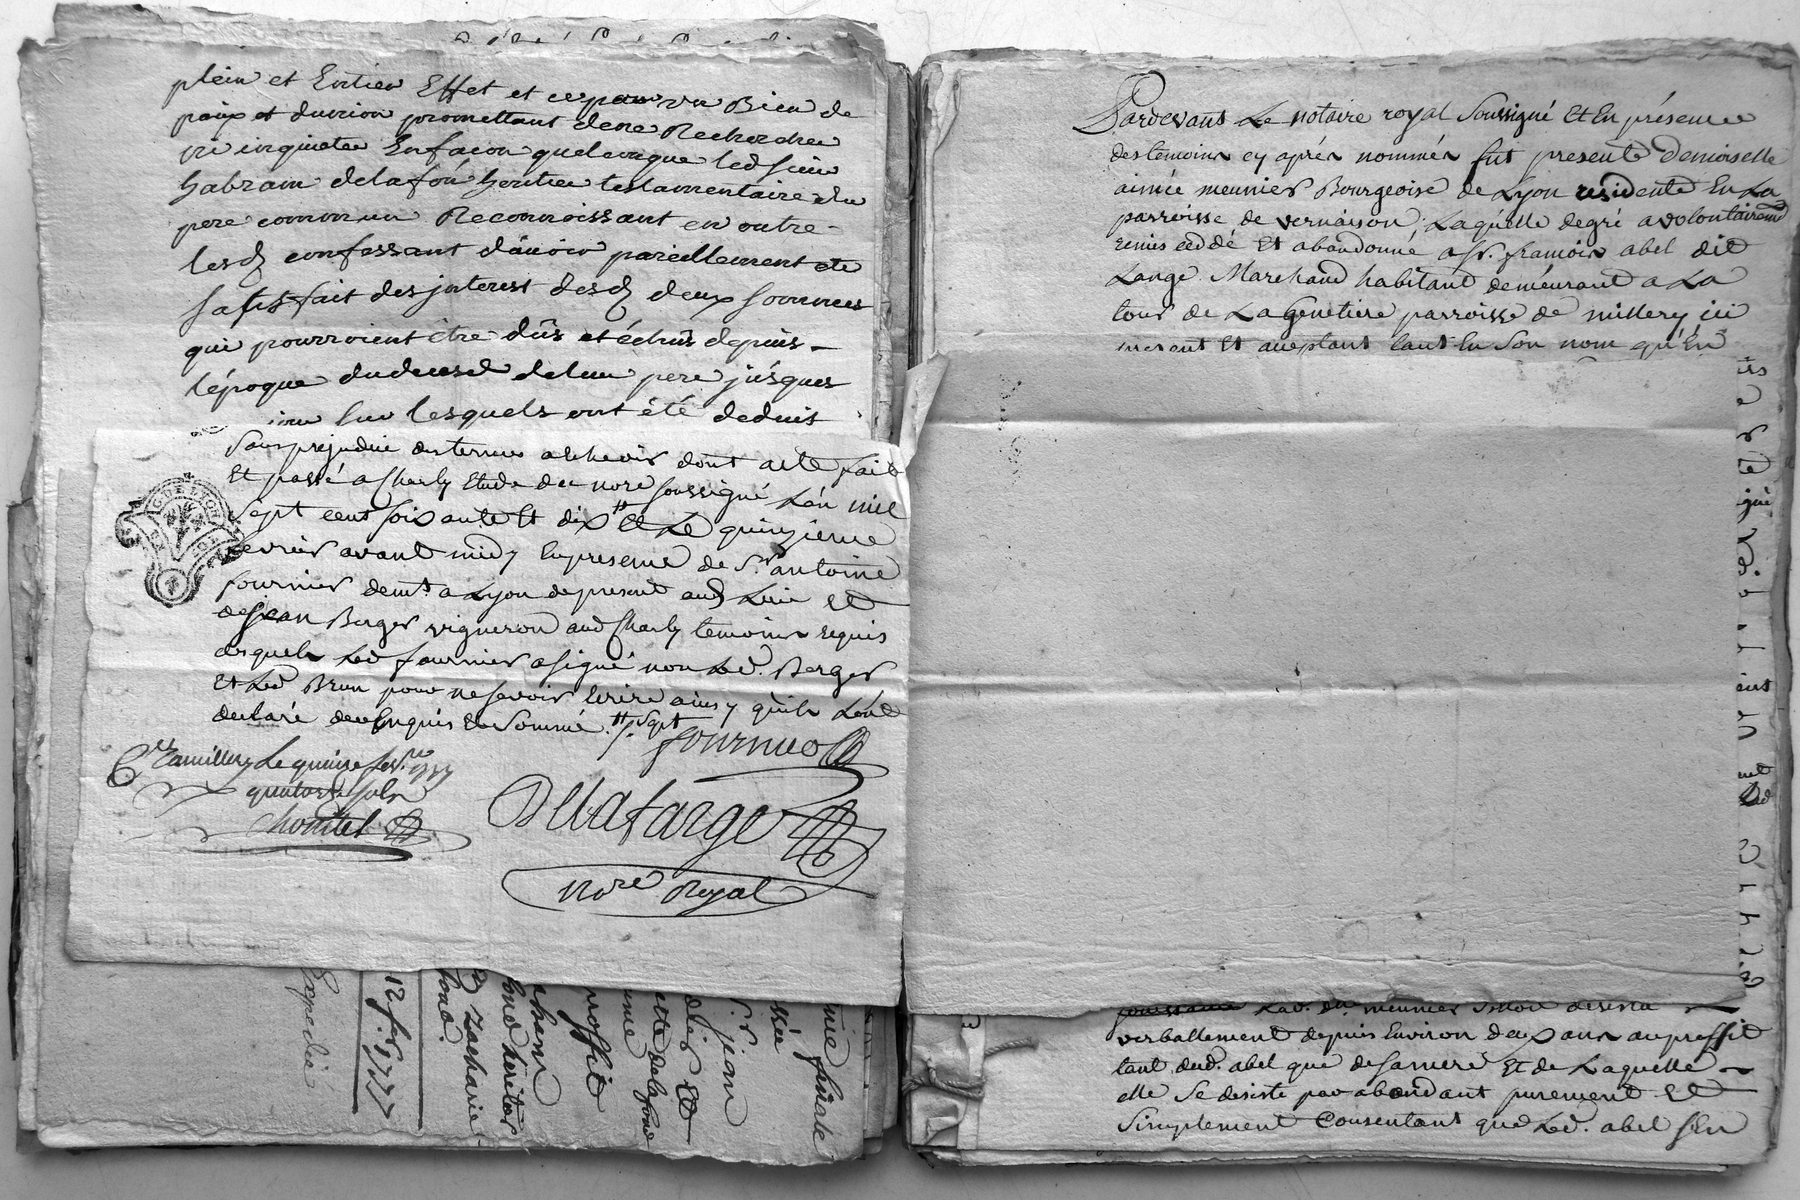 plein et Entier Effet et ce pour un Bien de
paix et d'union promettant de ne Rechercher
ni inquieter En façon quelconque led sieur
habram delafon heritier testamentaire du
pere commun Reconnoissant en outre
lesd confessant d'avoir pareillement été
satisfait des interest desd deux sommes
qui pourroient être dûs et échûs depuis
l'époque du deces de leur pere jusques
sur lesquels ont été deduis
Sans prejudice des termes a Echeoir dont acte fait
Et passé a Charly Etude du nore soussigné L'an mil
Sept cent soixante Et dix Sept Et Le quinzieme
fevrier avant midy En presence de Sr. antoine
fournier demt. a Lyon de present aud Lieu Et
de jean Berger vigneron aud Charly temoins requis
desquels Led fournier a signé non Led. Berger
Et Led Brun pour ne savoir Ecrire ainsy qu'ils L'ont
declaré de ce Enquis Et Sommé. Sept
fournier
Cé a millery Le quinze fev. 1777
quatorze sols
Chomtel
Delafarge
Nore Royal
G. DE LYON
Expedié
12 f.r 1777
Zacharie
fond
fond heritier
proffit
delafond
Sr. jean
finale
Pardevant Le notaire royal Soussigné Et En présence
des temoins cy aprés nommés fut presente Demoiselle
aimée meunier Bourgeoise de Lyon residente En La
parroisse de vernaison, Laquelle de gré a volontairemt
remis cedé Et abandonné a Sr. françois abel dit
Lange Marchand habitant demeurant a La
tour de La Genetiere parroisse de millery ici
present Et aceptant tant En Son nom qu'En
jouissance Lad. dlle meunier s'étoit desistée
verballement depuis Environ deux ans au proffit
tant dud. abel que de sa mere Et de Laquelle
elle Se desiste par abondant purement Et
Simplement Consentant que Led. abel s'En